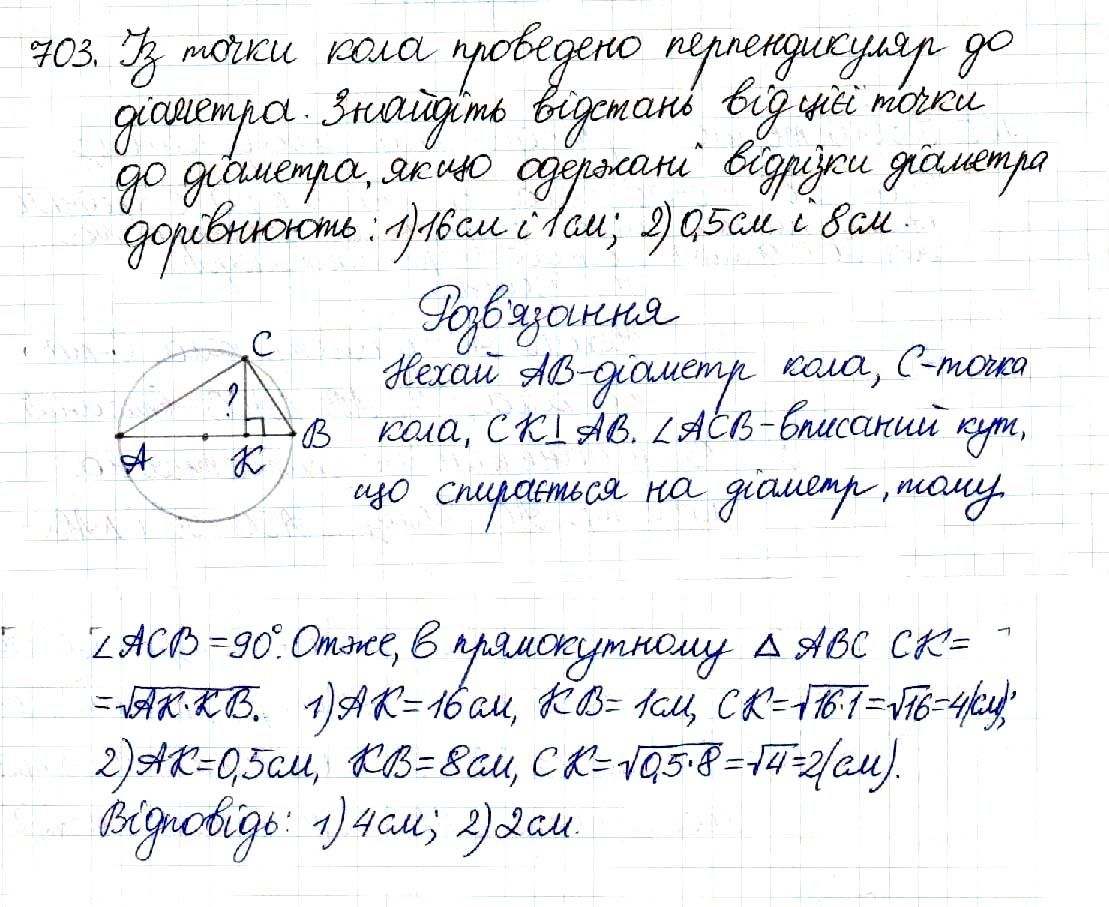 703. Із точки кола проведено перпендикуляр до
діаметра. Знайдіть відстань від цієї точки
до діаметра, якщо одержані відрізки діаметра
дорівнюють: 1) 16 см і 1 см; 2) 0,5 см і 8 см.
Розв'язання
Нехай AB - діаметр кола, C - точка
кола, CK⊥AB. ∠ACB - вписаний кут,
що спирається на діаметр, тому
C
?
A
K
B
∠ACB = 90°. Отже, в прямокутному △ ABC CK =
= √AK·KB. 1) AK = 16 см, KB = 1 см, CK = √16·1 = √16 = 4 (см);
2) AK = 0,5 см, KB = 8 см, CK = √0,5·8 = √4 = 2 (см).
Відповідь: 1) 4 см; 2) 2 см.